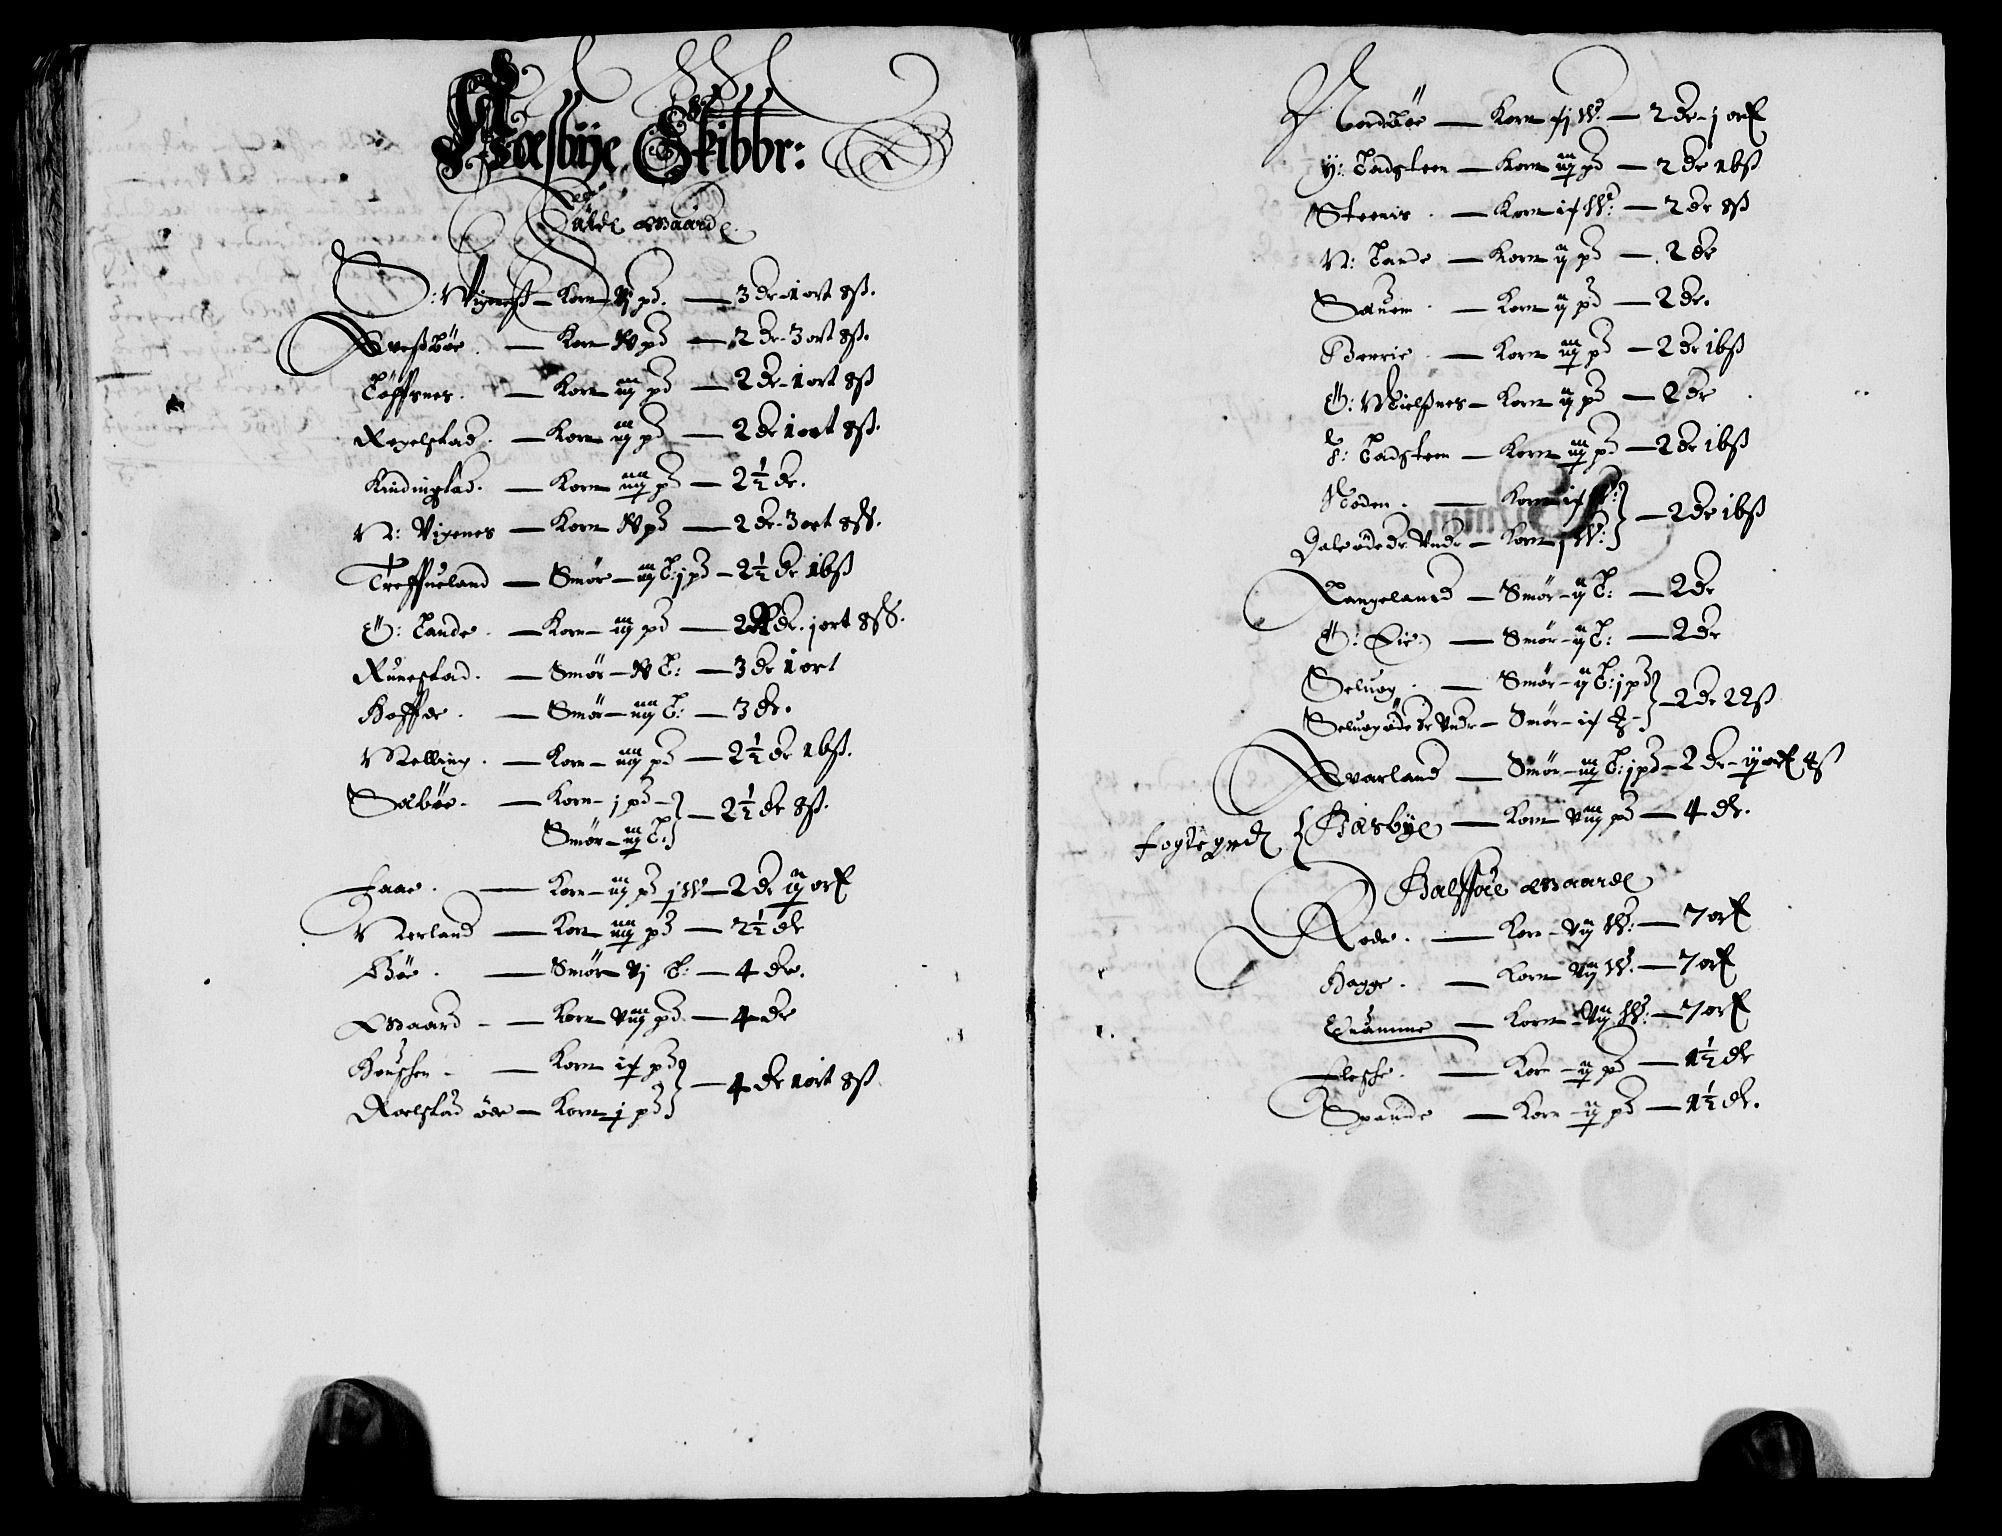 Næsbye Skibbr:
Fulde Gaarde
S: Vigenes — Korn vj pd. — 3 dr - 1 ort 8 ß.
Qvesbøe. — Korn v pd — 2 dr - 3 ort 8 ß.
Tøffsnes. — Korn iiij pd — 2 dr - 1 ort 8 ß
Regelstad. — Korn iij pd — 2 dr 1 ort 8 ß.
Kindingstad. — Korn iiij pd — 2 ½ dr.
N: Vigenes — Korn v pd — 2 dr - 3 ort 8 ß.
Treffueland — Smør — iij L: j pd — 2 ½ dr 16 ß
Ø: Lande. — Korn — iij pd — 2 dr. j ort 8 ß.
Runestad. — Smør — v L: — 3 dr 1 ort
Hoffde. — Smør — iiij L: — 3 dr.
Melling. — Korn — iiij pd — 2 ½ dr 16 ß.
Sæbøe — Korn — j pd — } — 2 ½ dr 8 ß.
Smør — iij L: }
Haae. — Korn — iij pd j W — 2 dr iij ort
Nerland — Korn iiij pd — 2 ½ dr
Bøe. — Smør vj L: — 4 dr.
Gaard — — Korn viij pd — 4 dr
Houschen — — Korn if pd } — 4 dr 1 ort 8 ß
Roelstad øde — Korn j pd }
Nordbøe — Korn fj W: — 2 dr - j ort
Y: Tadsteen — Korn iij pd — 2 dr 16 ß
Steenis. — Korn if W: — 2 dr 8 ß
N: Lande — Korn ij pd — 2 dr
Sauem. — Korn ij pd — 2 dr.
Berrie. — Korn iij pd — 2 dr 16 ß
Ø: Mielsnes — Korn ij pd — 2 dr
Tadsteen — Korn iij pd — 2 dr 16 ß
Noden. — Korn if W: } — 2 dr 16 ß
Dale ødedr Vndr — Korn j W: }
Langeland — Smør — ij L: — 2 dr
Ø: Lie — Smør — ij L: — 2 dr
Seluog. — Smør — ij L: j pd } — 2 dr 22 ß
Seluog ødedr Vndr — Smør — if }
Qvarland — Smør — iij L: j pd — 2 dr — ij ort 4 ß
fogte grd { Basbye — Korn viij pd — 4 dr.
Halffue Gaarde
Rode. — Korn — vij W: — 7 ort
Hagge. — Korn vij W. — 7 ort
Quamme — Korn — vij W: — 7 ort
Flesche. — Korn — ij pd — 1 ½ dr
Spande — Korn — ij pd — 1 ½ dr.